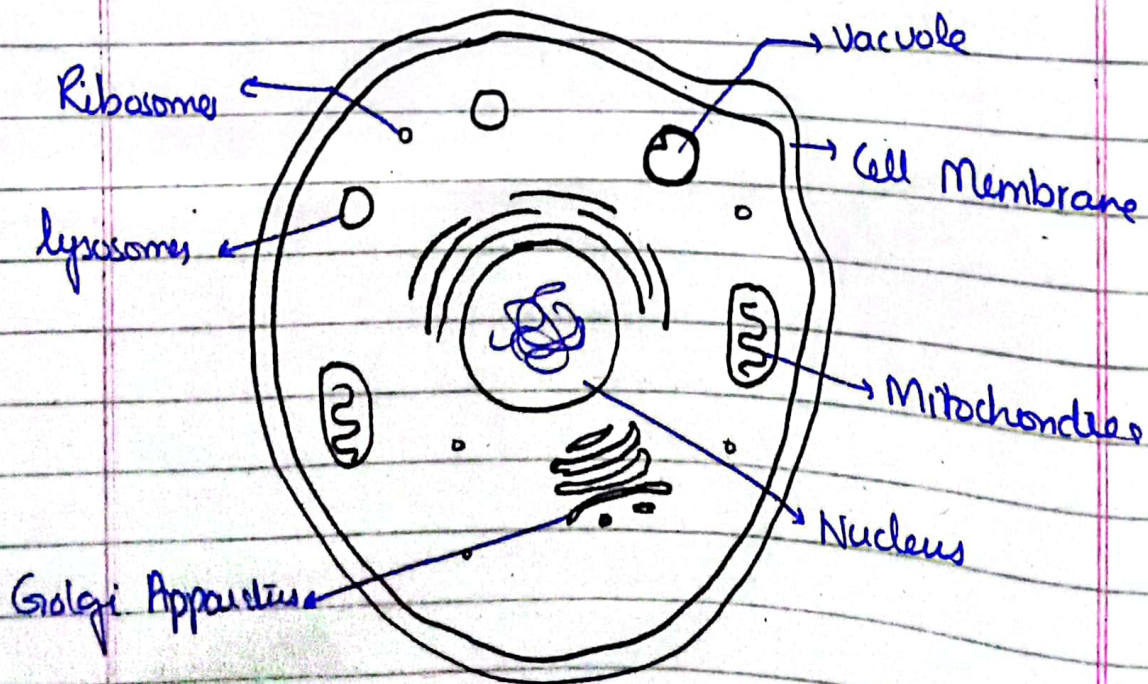 Vacuole
Ribosomes
Cell Membrane
lysosomes
Mitochondries
Nucleus
Golgi Apparatus